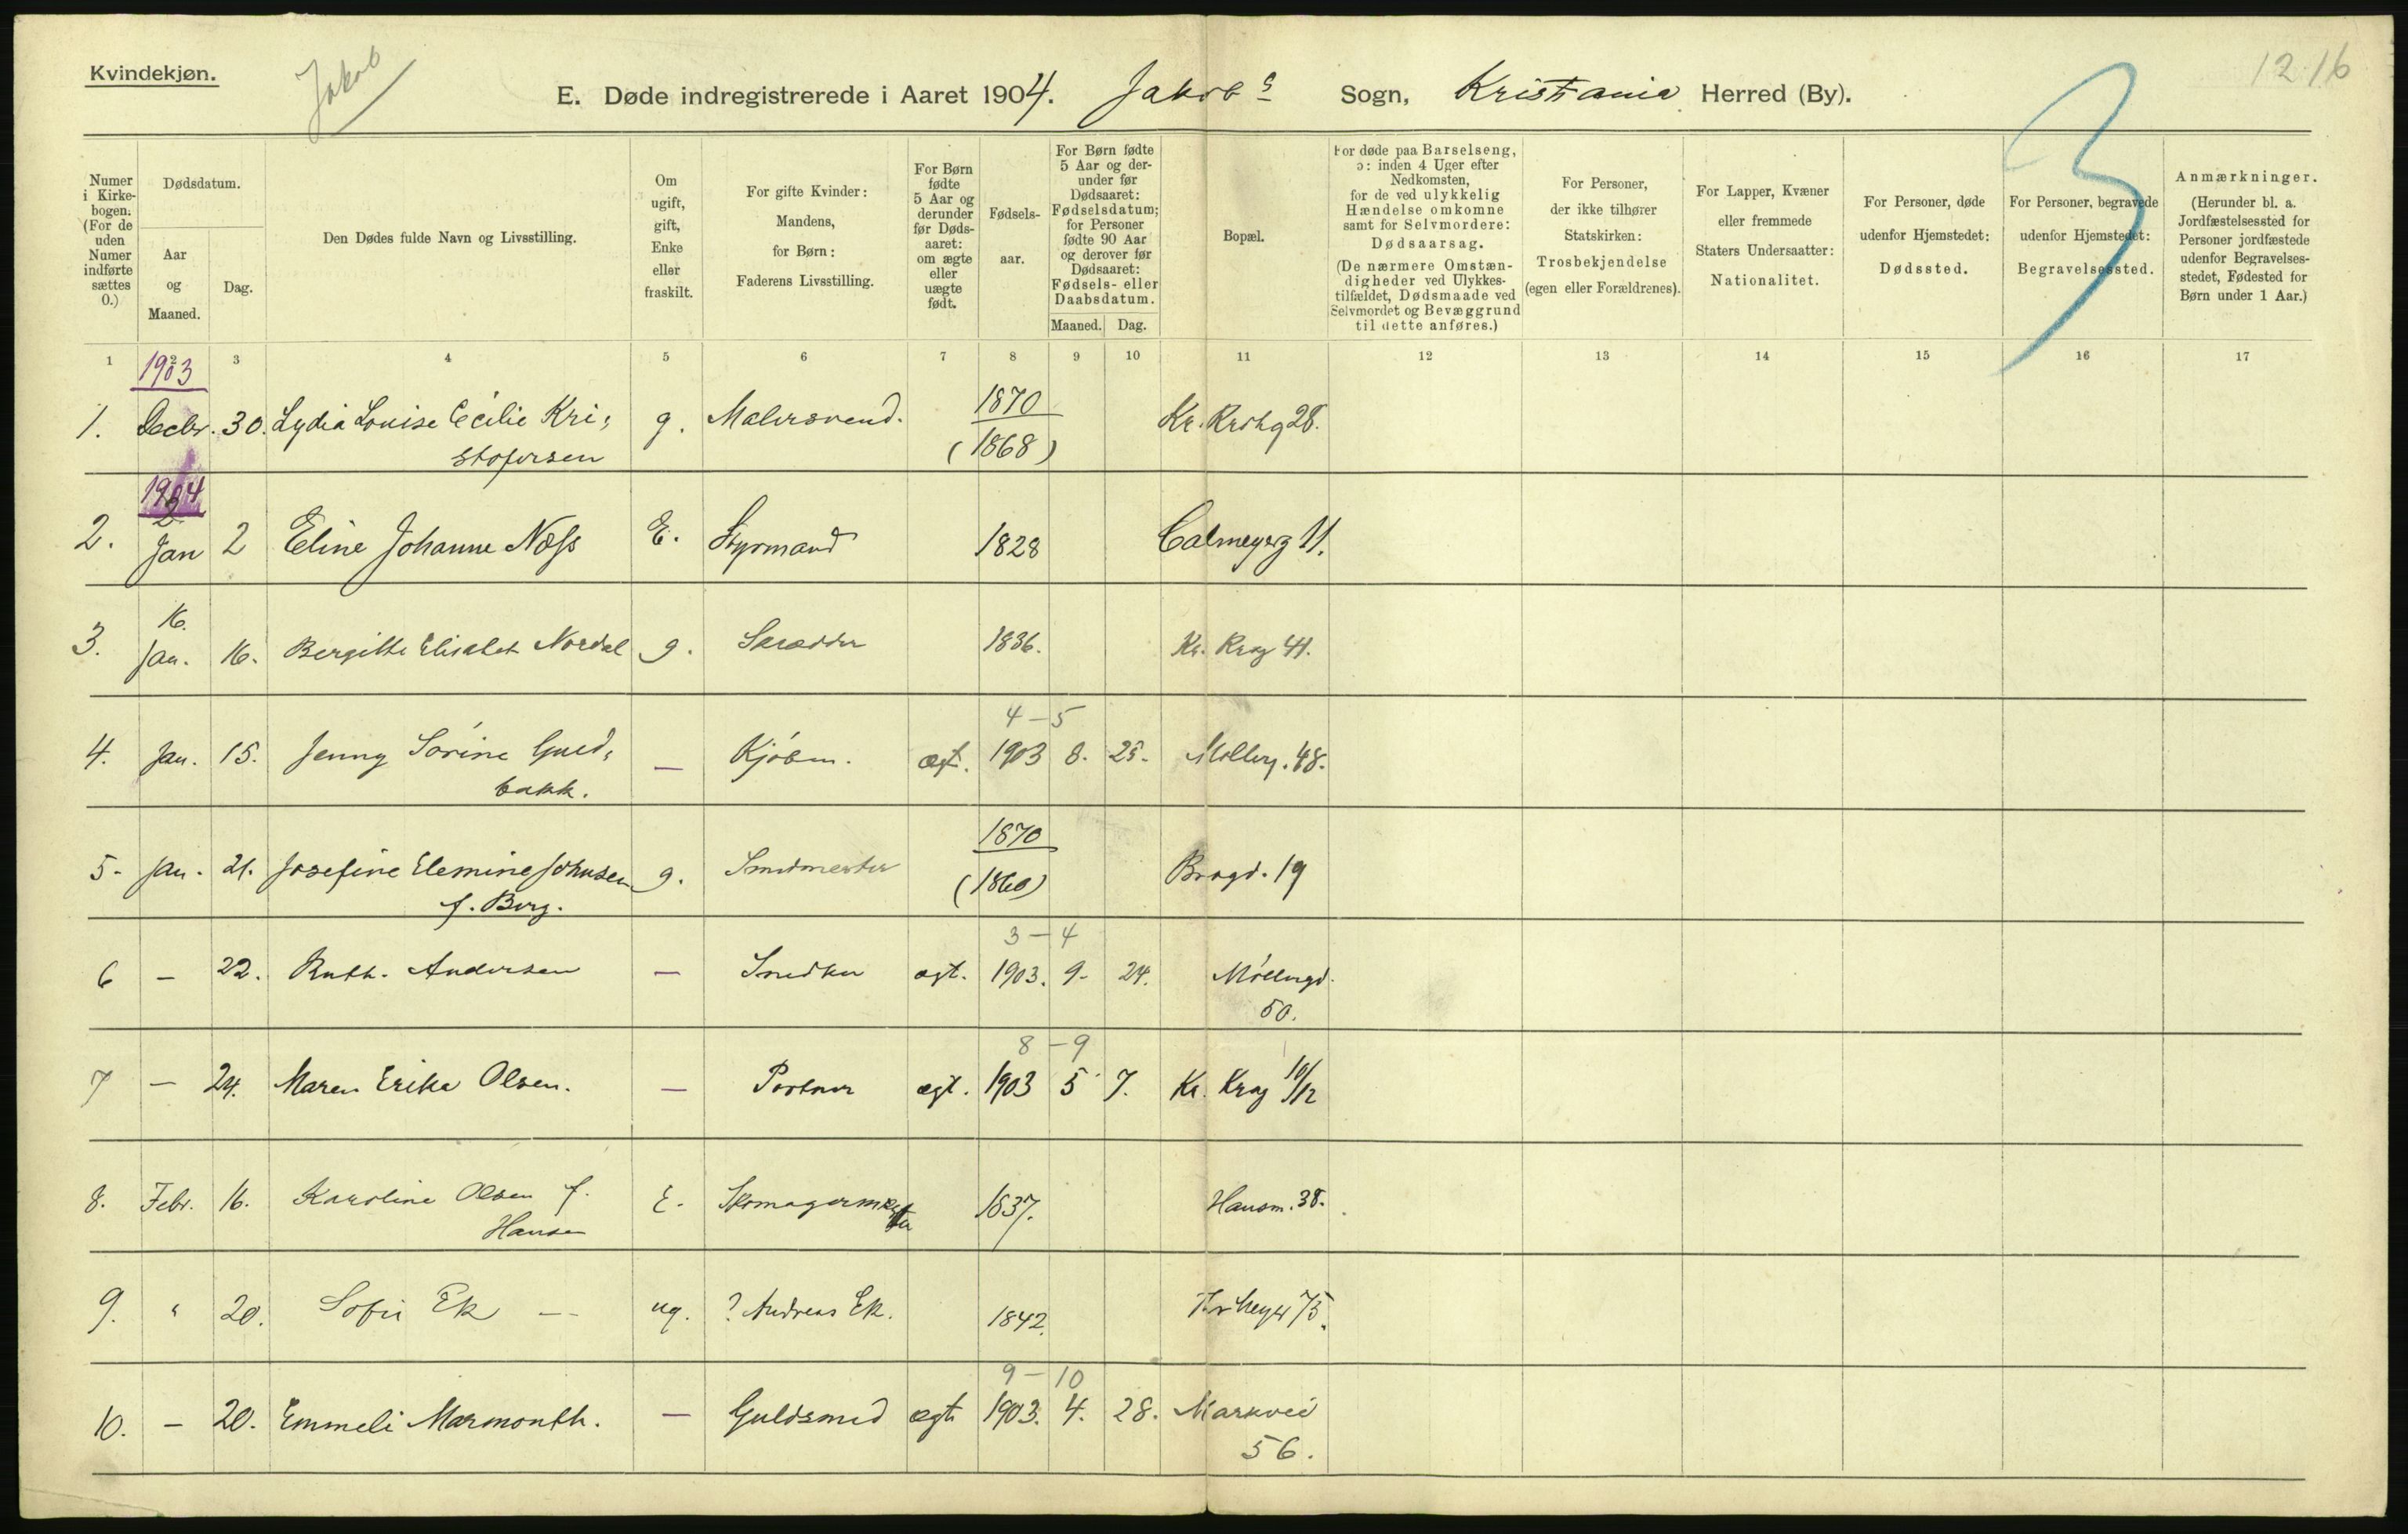 Kvindekjøn.
Jakob
E. Døde indregistrerede i Aaret 1904. Jakobs Sogn, Kristiania Herred (By).
1216
3
Numer i Kirke-bogen. (For de uden Numer indførte sættes 0.)
Dødsdatum.
Aar og Maaned.
Dag.
Den Dødes fulde Navn og Livsstilling.
Om ugift, gift, Enke eller fraskilt.
For gifte Kvinder: Mandens, for Børn: Faderens Livsstilling.
For Børn fødte 5 Aar og derunder før Døds-aaret: om ægte eller uægte født.
Fødsels-aar.
For Børn fødte 5 Aar og der-under før Dødsaaret: Fødselsdatum; for Personer fødte 90 Aar og derover før Dødsaaret: Fødsels- eller Daabsdatum.
Maaned. Dag.
Bopæl.
For døde paa Barselseng, ɔ: inden 4 Uger efter Nedkomsten, for de ved ulykkelig Hændelse omkomne samt for Selvmordere: Dødsaarsag. (De nærmere Omstæn-digheder ved Ulykkes-tilfældet, Dødsmaade ved Selvmordet og Bevæggrund til dette anføres.)
For Personer, der ikke tilhører Statskirken: Trosbekjendelse (egen eller Forældrenes).
For Lapper, Kvæner eller fremmede Staters Undersaatter: Nationalitet.
For Personer, døde udenfor Hjemstedet: Dødssted.
For Personer, begravede udenfor Hjemstedet: Begravelsessted.
Anmærkninger. (Herunder bl. a. Jordfæstelsessted for Personer jordfæstede udenfor Begravelses-stedet, Fødested for Børn under 1 Aar.)
1 2 3 4 5 6 7 8 9 10 11 12 13 14 15 16 17
1903
1. Decbr. 30. Lydia Louise Cecilie Kri- g. Malersvend. 1870 Kr. Krohg 28.
stofersen (1868)
1904
2
2. Jan 2 Eline Johanne Næss E. Styrmand 1828 Calmeyerg 11.
16.
3. Jan. 16. Bergitte Elisabet Nordal g. Skrædder 1836. Kr. Krog 41.
4-5
4. Jan. 15. Jenny Sörine Guld- — Kjöbm. ægt. 1903 8. 25. Mollerg. 48.
bakk.
1870
5. Jan. 21. Josefine Elemine Johnsen g. Smedmester (1860) Brogd. 19
f. Berg.
3-4
6 — 22. Ruth. Andersen — Snedker ægt. 1903. 9. 24. Möllergd.
50.
8-9
7 — 24. Maren Erika Olsen. — Portner ægt. 1903 5 7. Kr. Krog 10/12
8. Febr. 16. Karoline Olsen f. E. Skomagermester 1837. Hausm. 38.
Hansen
9. " 20. Sofie Ek — ug. ? Andreas Ek. 1842. Thv Meyer 75.
9-10
10. — 20. Emmeli Marmonth. — Guldsmed ægte 1903. 4. 28. Markvei
56.